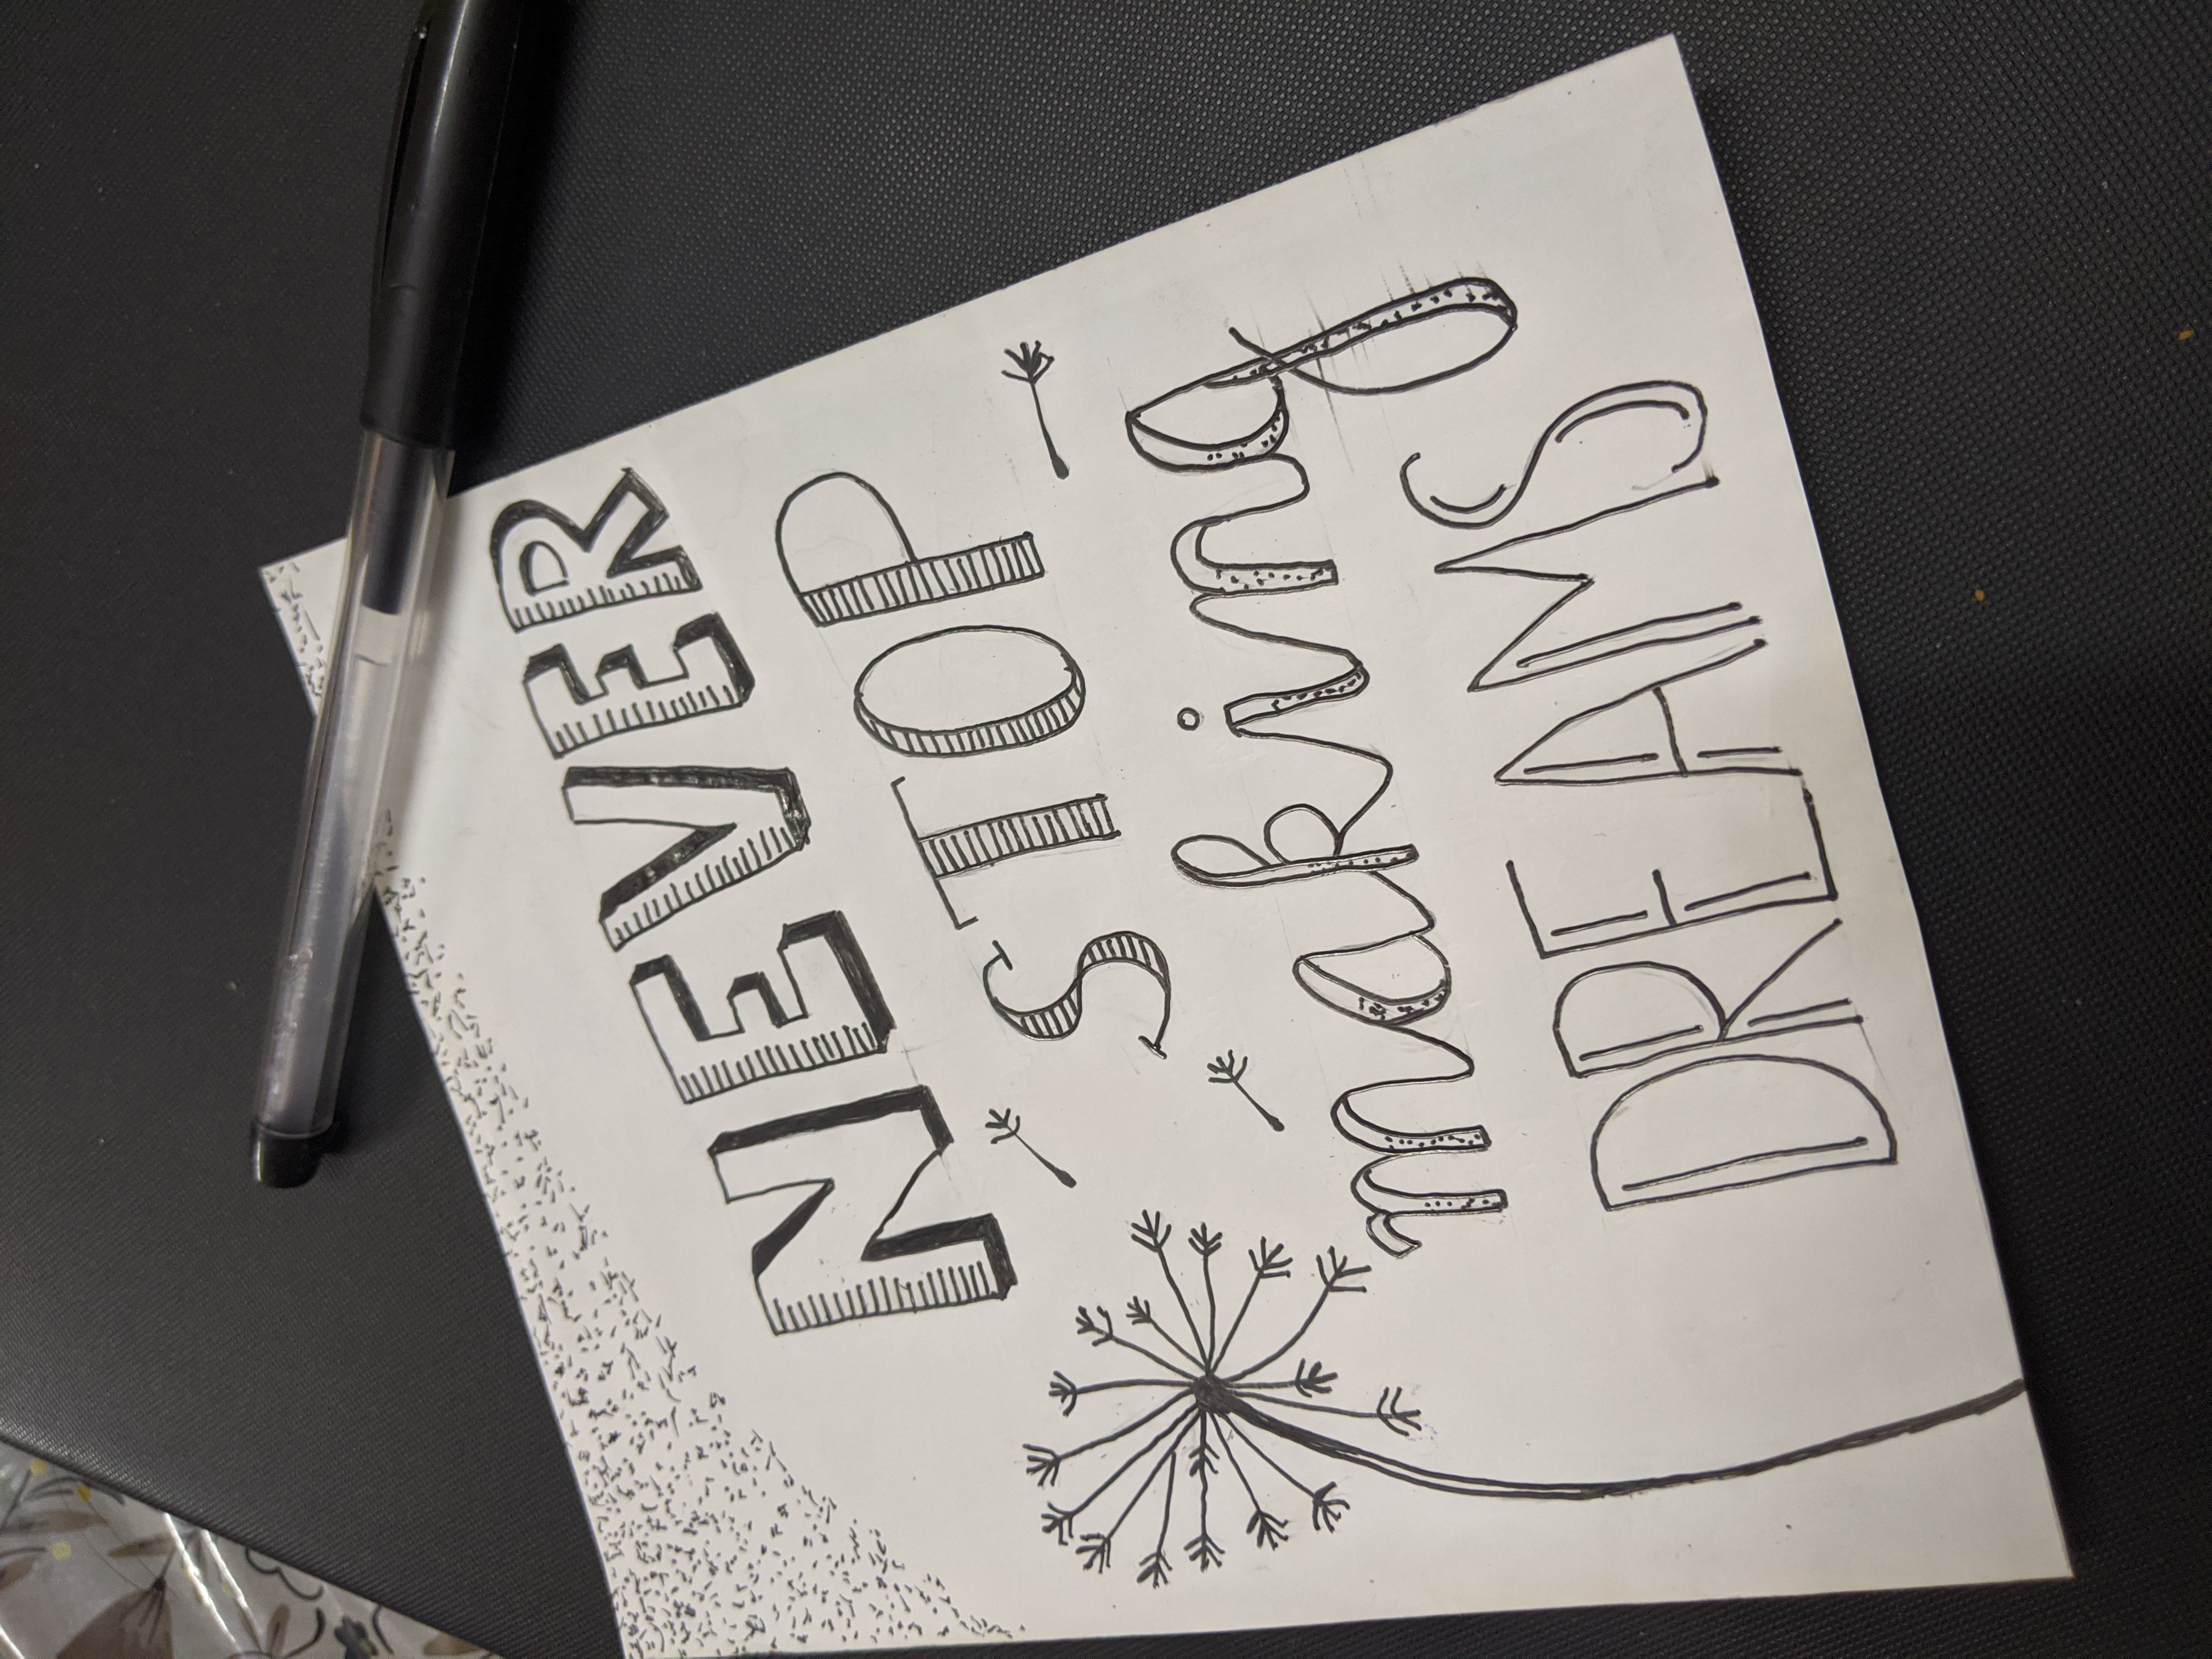 NEVER
STOP
making
DREAMS